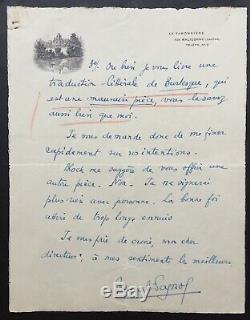 LE TARBOUNIÈRE
PAR MALICORNE (SARTHE)
TÉLÉPH. N° 8
3°/ Ou bien je vous livre une
traduction littérale de Burlesque, qui
est une mauvaise pièce, vous le savez
aussi bien que moi.
Je vous demande donc de me fixer
rapidement sur vos intentions.
Koch me suggère de vous offrir une
autre pièce. Non. Je ne signerai
plus rien avec personne. La bonne foi
abîme de trop longs ennuis
Je vous prie de croire, mon cher
directeur, à mes sentiments les meilleurs
Marcel Pagnol